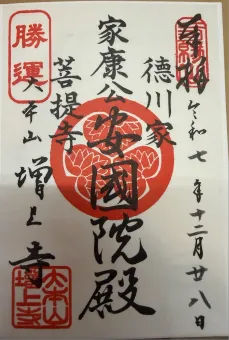 奉拝
令和七年十二月廿八日
徳川家
家康公安國院殿
菩提寺
勝運
大本山増上寺
大本山
増上寺